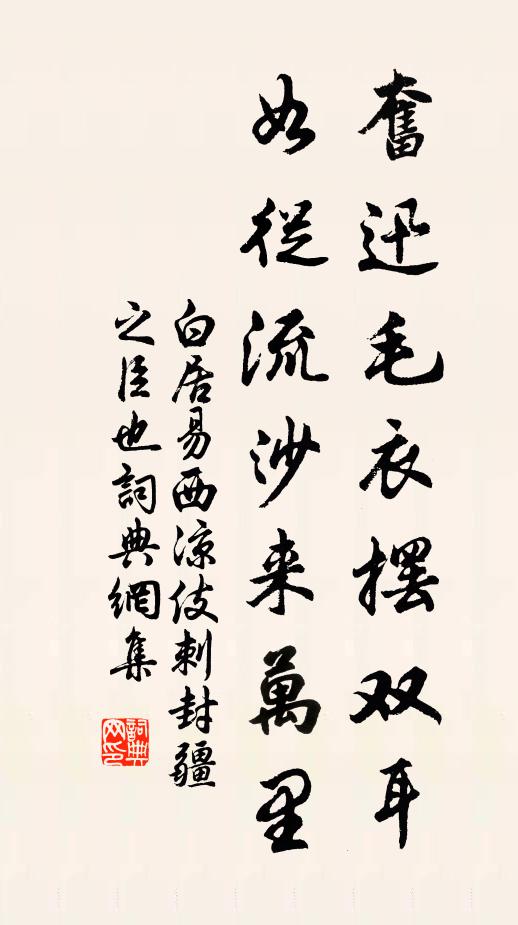 奮迅毛衣擺双耳
如從流沙来萬里
白居易西涼伎刺封疆
之臣也詞典網集
詞典網印